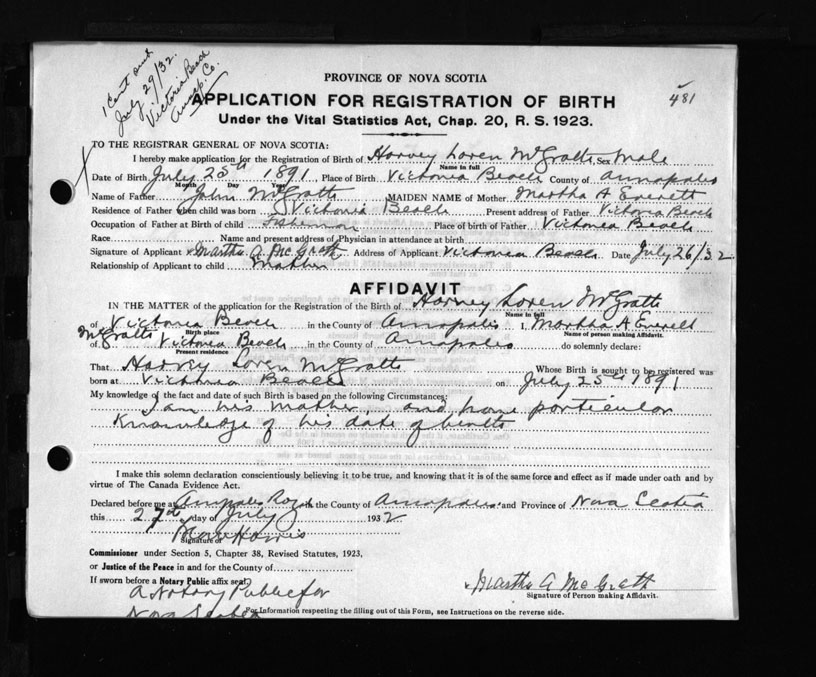 1 Cert sent
July 29/32.
Victoria Beach
Annap. Co.
481
PROVINCE OF NOVA SCOTIA
APPLICATION FOR REGISTRATION OF BIRTH
Under the Vital Statistics Act, Chap. 20, R. S. 1923.
TO THE REGISTRAR GENERAL OF NOVA SCOTIA:
I hereby make application for the Registration of Birth of Harvey Loren McGrath Sex Male
Name in full
Date of Birth July 25th 1891 Place of Birth Victoria Beach County of Annapolis
Month Day Year
Name of Father John McGrath MAIDEN NAME of Mother Martha A Everett
Residence of Father when child was born Victoria Beach Present address of Father Victoria Beach
Occupation of Father at Birth of child Fisherman Place of birth of Father Victoria Beach
Race Name and present address of Physician in attendance at birth
Signature of Applicant Martha A McGrath Address of Applicant Victoria Beach Date July 26/32
Relationship of Applicant to child Mother
AFFIDAVIT
IN THE MATTER of the application for the Registration of the Birth of Harvey Loren McGrath
Name in full
of Victoria Beach in the County of Annapolis I, Martha A Everett
Birth place Name of person making Affidavit.
McGrath of Victoria Beach in the County of Annapolis do solemnly declare:
Present residence
That Harvey Loren McGrath Whose Birth is sought to be registered was
born at Victoria Beach on July 25th 1891
My knowledge of the fact and date of such Birth is based on the following Circumstances:
I am his mother, and have particular
Knowledge of his date of birth
I make this solemn declaration conscientiously believing it to be true, and knowing that it is of the same force and effect as if made under oath and by
virtue of The Canada Evidence Act.
Declared before me at Annapolis Royal in the County of Annapolis and Province of Nova Scotia
this 27th day of July 1932
Harris
Signature of
Commissioner under Section 5, Chapter 38, Revised Statutes, 1923,
or Justice of the Peace in and for the County of
If sworn before a Notary Public affix seal.
A Notary Public for
Nova Scotia
Martha A McGrath
Signature of Person making Affidavit.
For Information respecting the filling out of this Form, see Instructions on the reverse side.